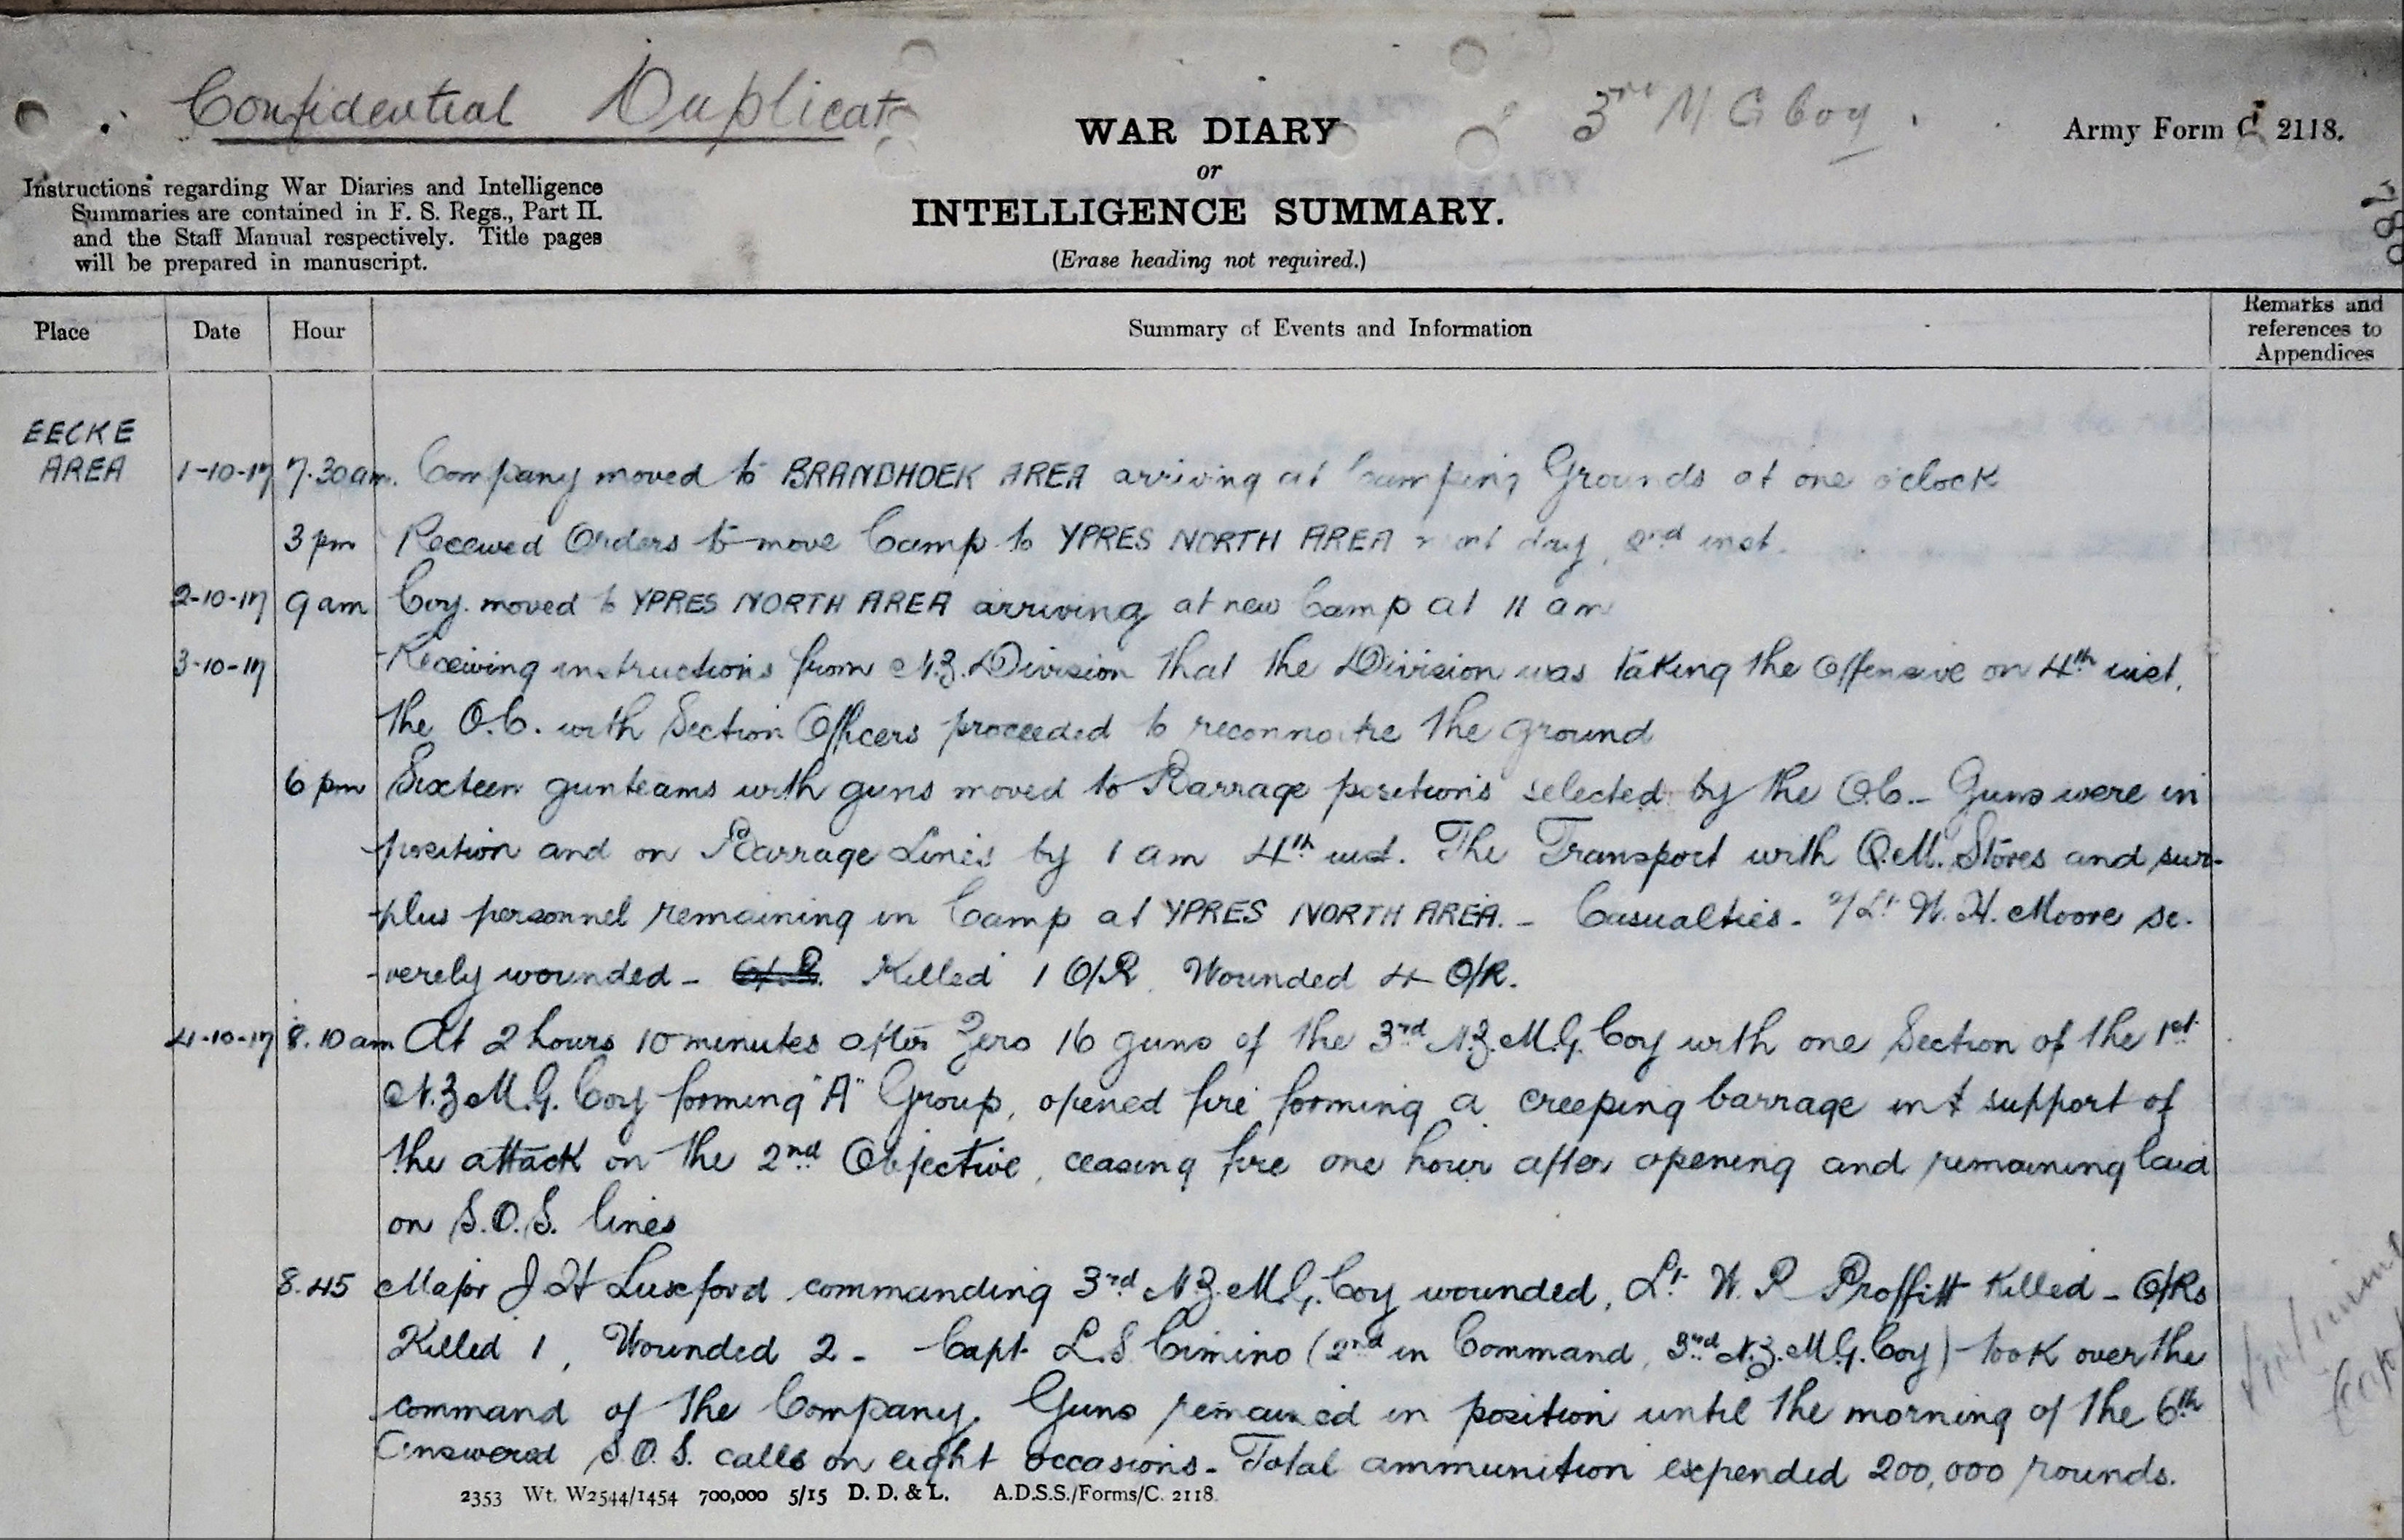 Confidential Duplicate
3rd M G Coy.
Army Form C. 2118.
WAR DIARY
or
INTELLIGENCE SUMMARY.
(Erase heading not required.)
Instructions regarding War Diaries and Intelligence
Summaries are contained in F. S. Regs., Part II.
and the Staff Manual respectively. Title pages
will be prepared in manuscript.
Place Date Hour Summary of Events and Information Remarks and
references to
Appendices
EECKE
AREA 1-10-17 7.30am. Company moved to BRANDHOEK AREA arriving at Camping Grounds at one o'clock
3 pm Received Orders to move Camp to YPRES NORTH AREA next day, 2nd inst.
2-10-17 9 am Coy. moved to YPRES NORTH AREA arriving at new Camp at 11 am
3-10-17 Receiving instructions from N.Z. Division that the Division was taking the Offensive on 4th inst,
the O.C. with Section Officers proceeded to reconnoitre the ground
6 pm Sixteen gunteams with guns moved to Barrage positions selected by the O.C. - Guns were in
position and on Barrage Lines by 1 am 4th inst. The Transport with Q.M. Stores and sur-
-plus personnel remaining in Camp at YPRES NORTH AREA. - Casualties - 2/Lt. W. H. Moore se-
-verely wounded - O/R. Killed 1 O/R. Wounded 4 O/R.
4-10-17 8.10 am At 2 hours 10 minutes after Zero 16 guns of the 3rd N.Z.M.G. Coy with one Section of the 1st
N.Z.M.G. Coy forming "A" Group, opened fire forming a creeping barrage in support of
the attack on the 2nd Objective, ceasing fire one hour after opening and remaining laid
on S.O.S. lines
8.45 Major J H Luxford commanding 3rd N.Z.M.G. Coy wounded, Lt. W. R Proffitt Killed - O/Rs
Killed 1, Wounded 2 - Capt. L.S Cimino (2nd in Command, 3rd N.Z.M.G. Coy) took over the
command of the Company. Guns remained in position until the morning of the 6th
Answered S.O.S. calls on eight occasions - Total ammunition expended 200,000 rounds.
2353 Wt. W2544/1454 700,000 5/15 D. D. & L. A.D.S.S./Forms/C. 2118.